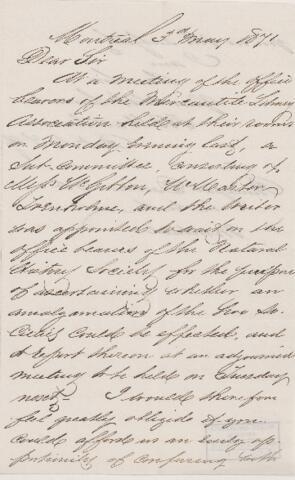 Montreal 3rd May 1871
Dear Sir
At a meeting of the office
bearers of the Mercantile Library
Association held at their rooms
on Monday evening last, a
Sub-Committee consisting of
Messrs
Trenholme, and the writer
was appointed to wait on the
office bearers of the Natural
History Society for the purpose
of ascertaining whether an
amalgamation of the two So-
cieties could be effected, and
to report thereon at an adjourned
meeting to be held on Thursday
next. I would there-
fore greatly obliged if you
could afford us an early op-
portunity of conferring with